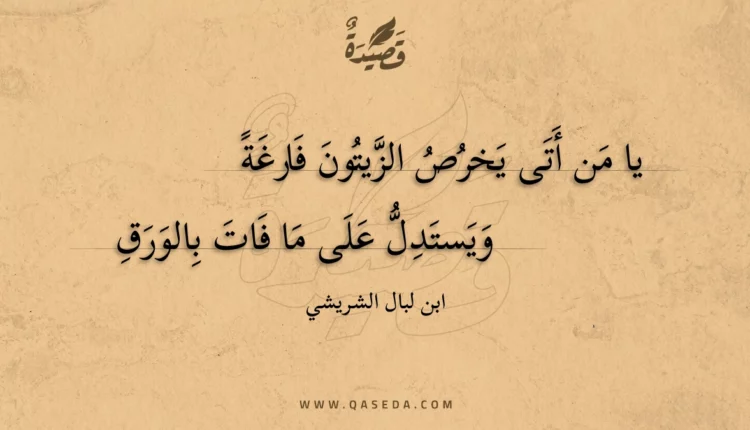 قَصِيدَةٌ
يا مَن أَتَى يَخرُصُ الزَّيتُونَ فَارغَةً
وَيَستَدِلُّ عَلَى مَا فَاتَ بِالوَرَقِ
ابن لبال الشريشي
WWW.QASEDA.COM